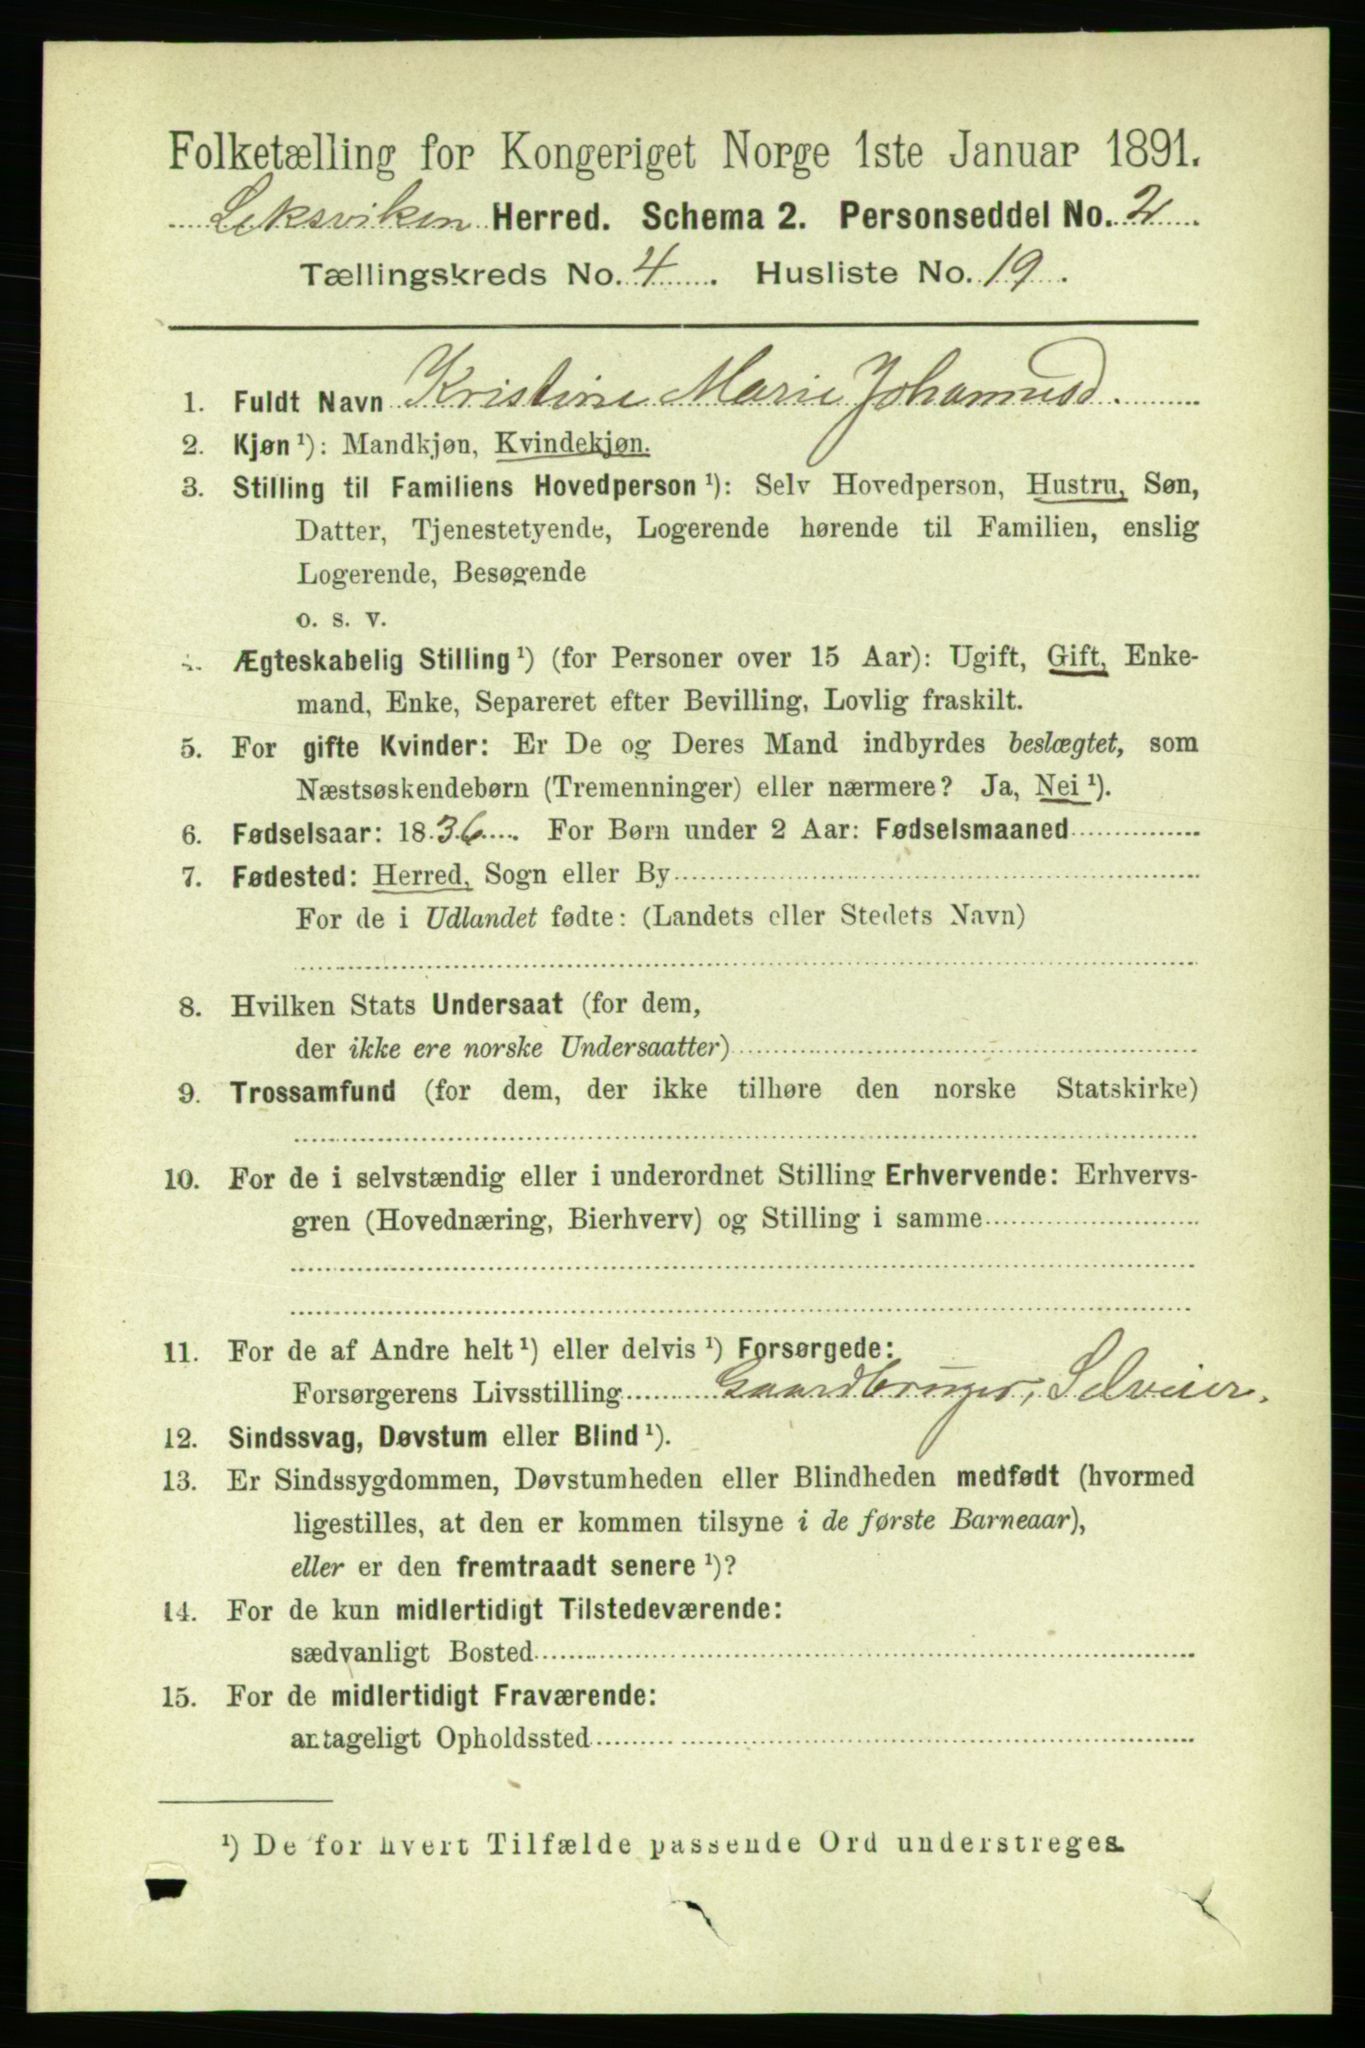 Folketælling for Kongeriget Norge 1ste Januar 1891.
Leksviken Herred. Schema 2. Personseddel No. 2
Tællingskreds No. 4. Husliste No. 19.
1. Fuldt Navn Kristine Marie Johannesd.
2. Kjøn¹): Mandkjøn, Kvindekjøn.
3. Stilling til Familiens Hovedperson¹): Selv Hovedperson, Hustru, Søn,
Datter, Tjenestetyende, Logerende hørende til Familien, enslig
Logerende, Besøgende
o. s. v.
4. Ægteskabelig Stilling¹) (for Personer over 15 Aar): Ugift, Gift, Enke-
mand, Enke, Separeret efter Bevilling, Lovlig fraskilt.
5. For gifte Kvinder: Er De og Deres Mand indbyrdes beslægtet, som
Næstsøskendebørn (Tremenninger) eller nærmere? Ja, Nei¹).
6. Fødselsaar: 1836. For Børn under 2 Aar: Fødselsmaaned
7. Fødested: Herred, Sogn eller By
For de i Udlandet fødte: (Landets eller Stedets Navn)
8. Hvilken Stats Undersaat (for dem,
der ikke ere norske Undersaatter)
9. Trossamfund (for dem, der ikke tilhøre den norske Statskirke)
10. For de i selvstændig eller i underordnet Stilling Erhvervende: Erhvervs-
gren (Hovednæring, Bierhverv) og Stilling i samme
11. For de af Andre helt¹) eller delvis¹) Forsørgede:
Forsørgerens Livsstilling Gaardbruger, Selveier.
12. Sindssvag, Døvstum eller Blind¹).
13. Er Sindssygdommen, Døvstumheden eller Blindheden medfødt (hvormed
ligestilles, at den er kommen tilsyne i de første Barneaar),
eller er den fremtraadt senere¹)?
14. For de kun midlertidigt Tilstedeværende:
sædvanligt Bosted
15. For de midlertidigt Fraværende:
antageligt Opholdssted
¹) De for hvert Tilfælde passende Ord understreges.